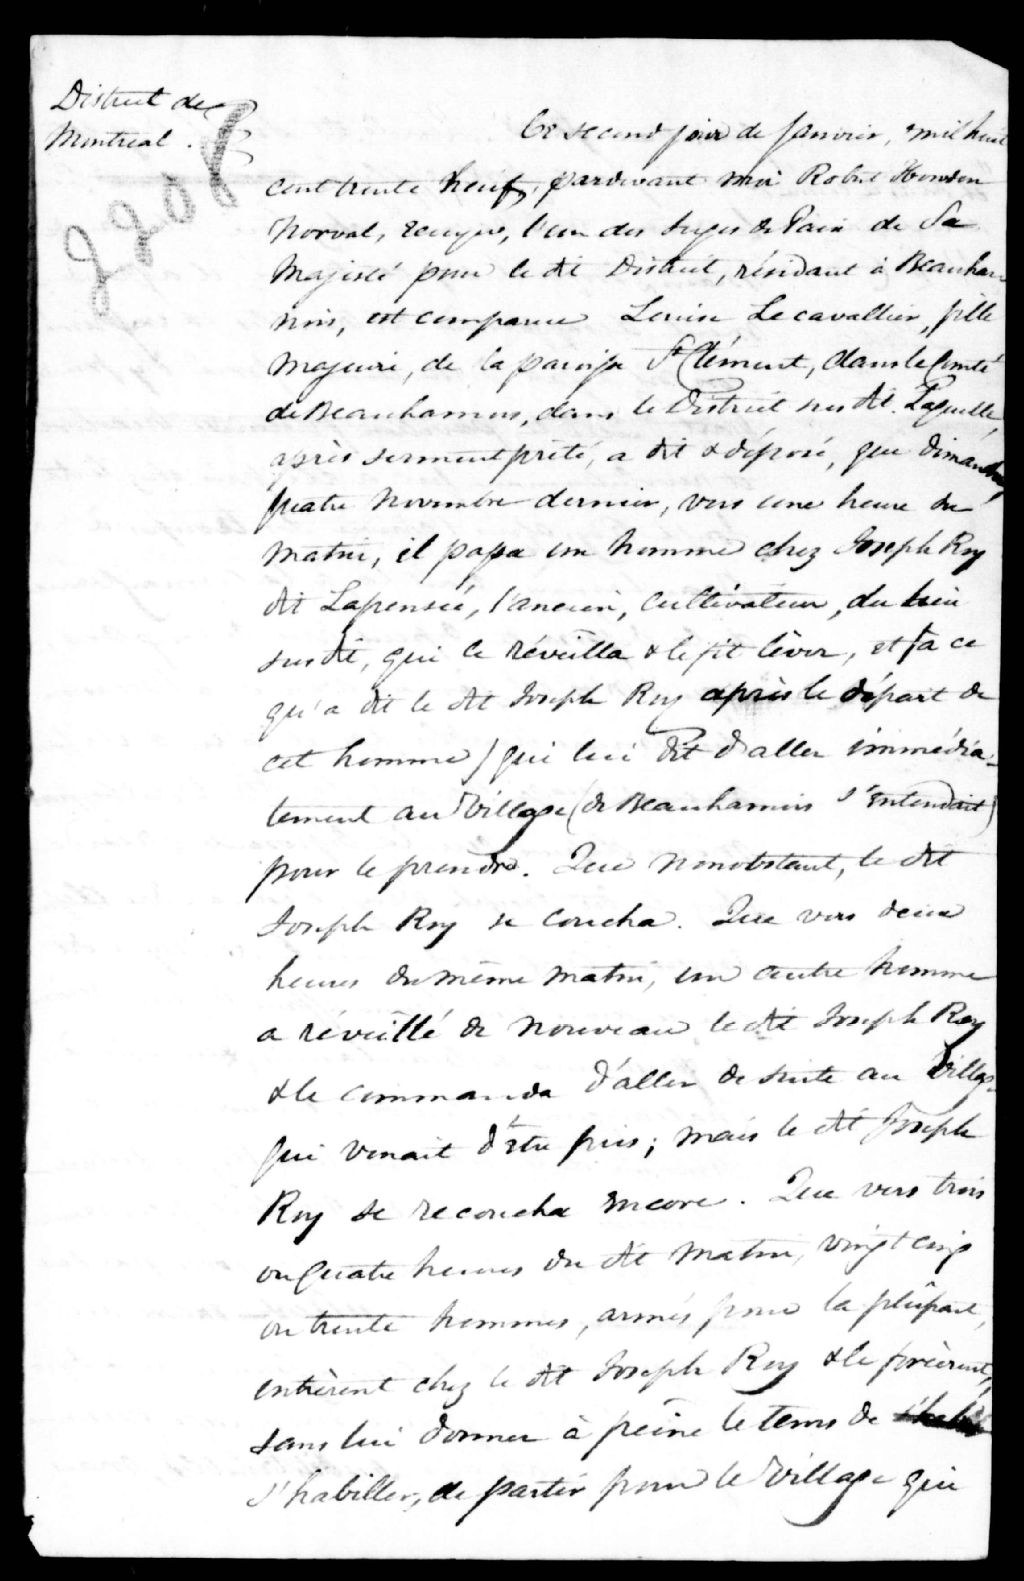 District de
Montreal.
2208
Ce second jour de Janvier, mil huit
cent trente neuf, pardevant moi Robert Howden
Norval, Ecuyer, l'un des Juges de Paix de Sa
Majesté pour le dit District, résidant à Beauhar-
nois, est comparue Louise Lecavallier, fille
majeure, de la paroisse St Clément, dans le Comté
de Beauharnois, dans le District susdit. Laquelle,
après serment prêté, a dit & déposé, que dimanche,
quatre Novembre dernier, vers une heure du
matin, il passa un homme chez Joseph Roy
dit Lapensée, l'ancien, cultivateur, du lieu
susdit, qui le réveilla & le fit lever, et (à ce
qu'a dit le dit Joseph Roy après le départ de
cet homme) qui lui dit d'aller immédia-
tement au Village (de Beauharnois s'entendait)
pour le prendre. Que nonobstant, le dit
Joseph Roy se coucha. Que vers deux
heures du même matin, un autre homme
a réveillé de nouveau le dit Joseph Roy
& le commanda d'aller de suite au Village
qui venait d'être pris; mais le dit Joseph
Roy se recoucha encore. Que vers trois
ou quatre heures du dit matin, vingt cinq
ou trente hommes, armés pour la plûpart,
entrèrent chez le dit Joseph Roy & le forcèrent,
sans lui donner à peine le tems de
s'habiller, de partir pour le Village qui